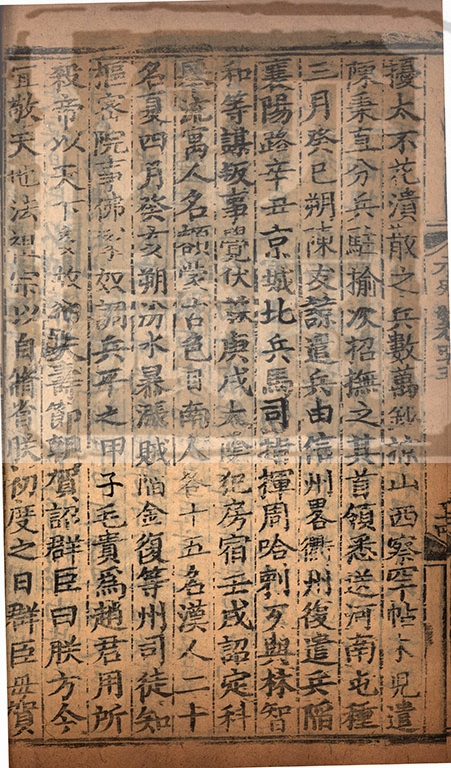 擾太不花潰散之兵數萬鈔掠山西察罕帖木兒遣
陳秉直分兵駐榆次招撫之其首領悉送河南屯種
三月癸巳朔陳友諒遣兵由信州畧衢州復遣兵陷
襄陽路辛丑京城北兵馬司指揮周哈剌歹與林智
和等謀叛事覺伏誅庚戌太陰犯房宿壬戌詔定科
流寓人名額蒙古色目南人各十五名漢人二十
名夏四月癸亥朔汾水暴漲賊陷金復等州司徒知
樞密院事佛家奴調兵平之甲子毛貴為趙君用所
殺帝以天下多故卻天壽節朝賀詔群臣曰朕方今
宜敬天地法祖宗以自脩省朕初度之日群臣毋賀